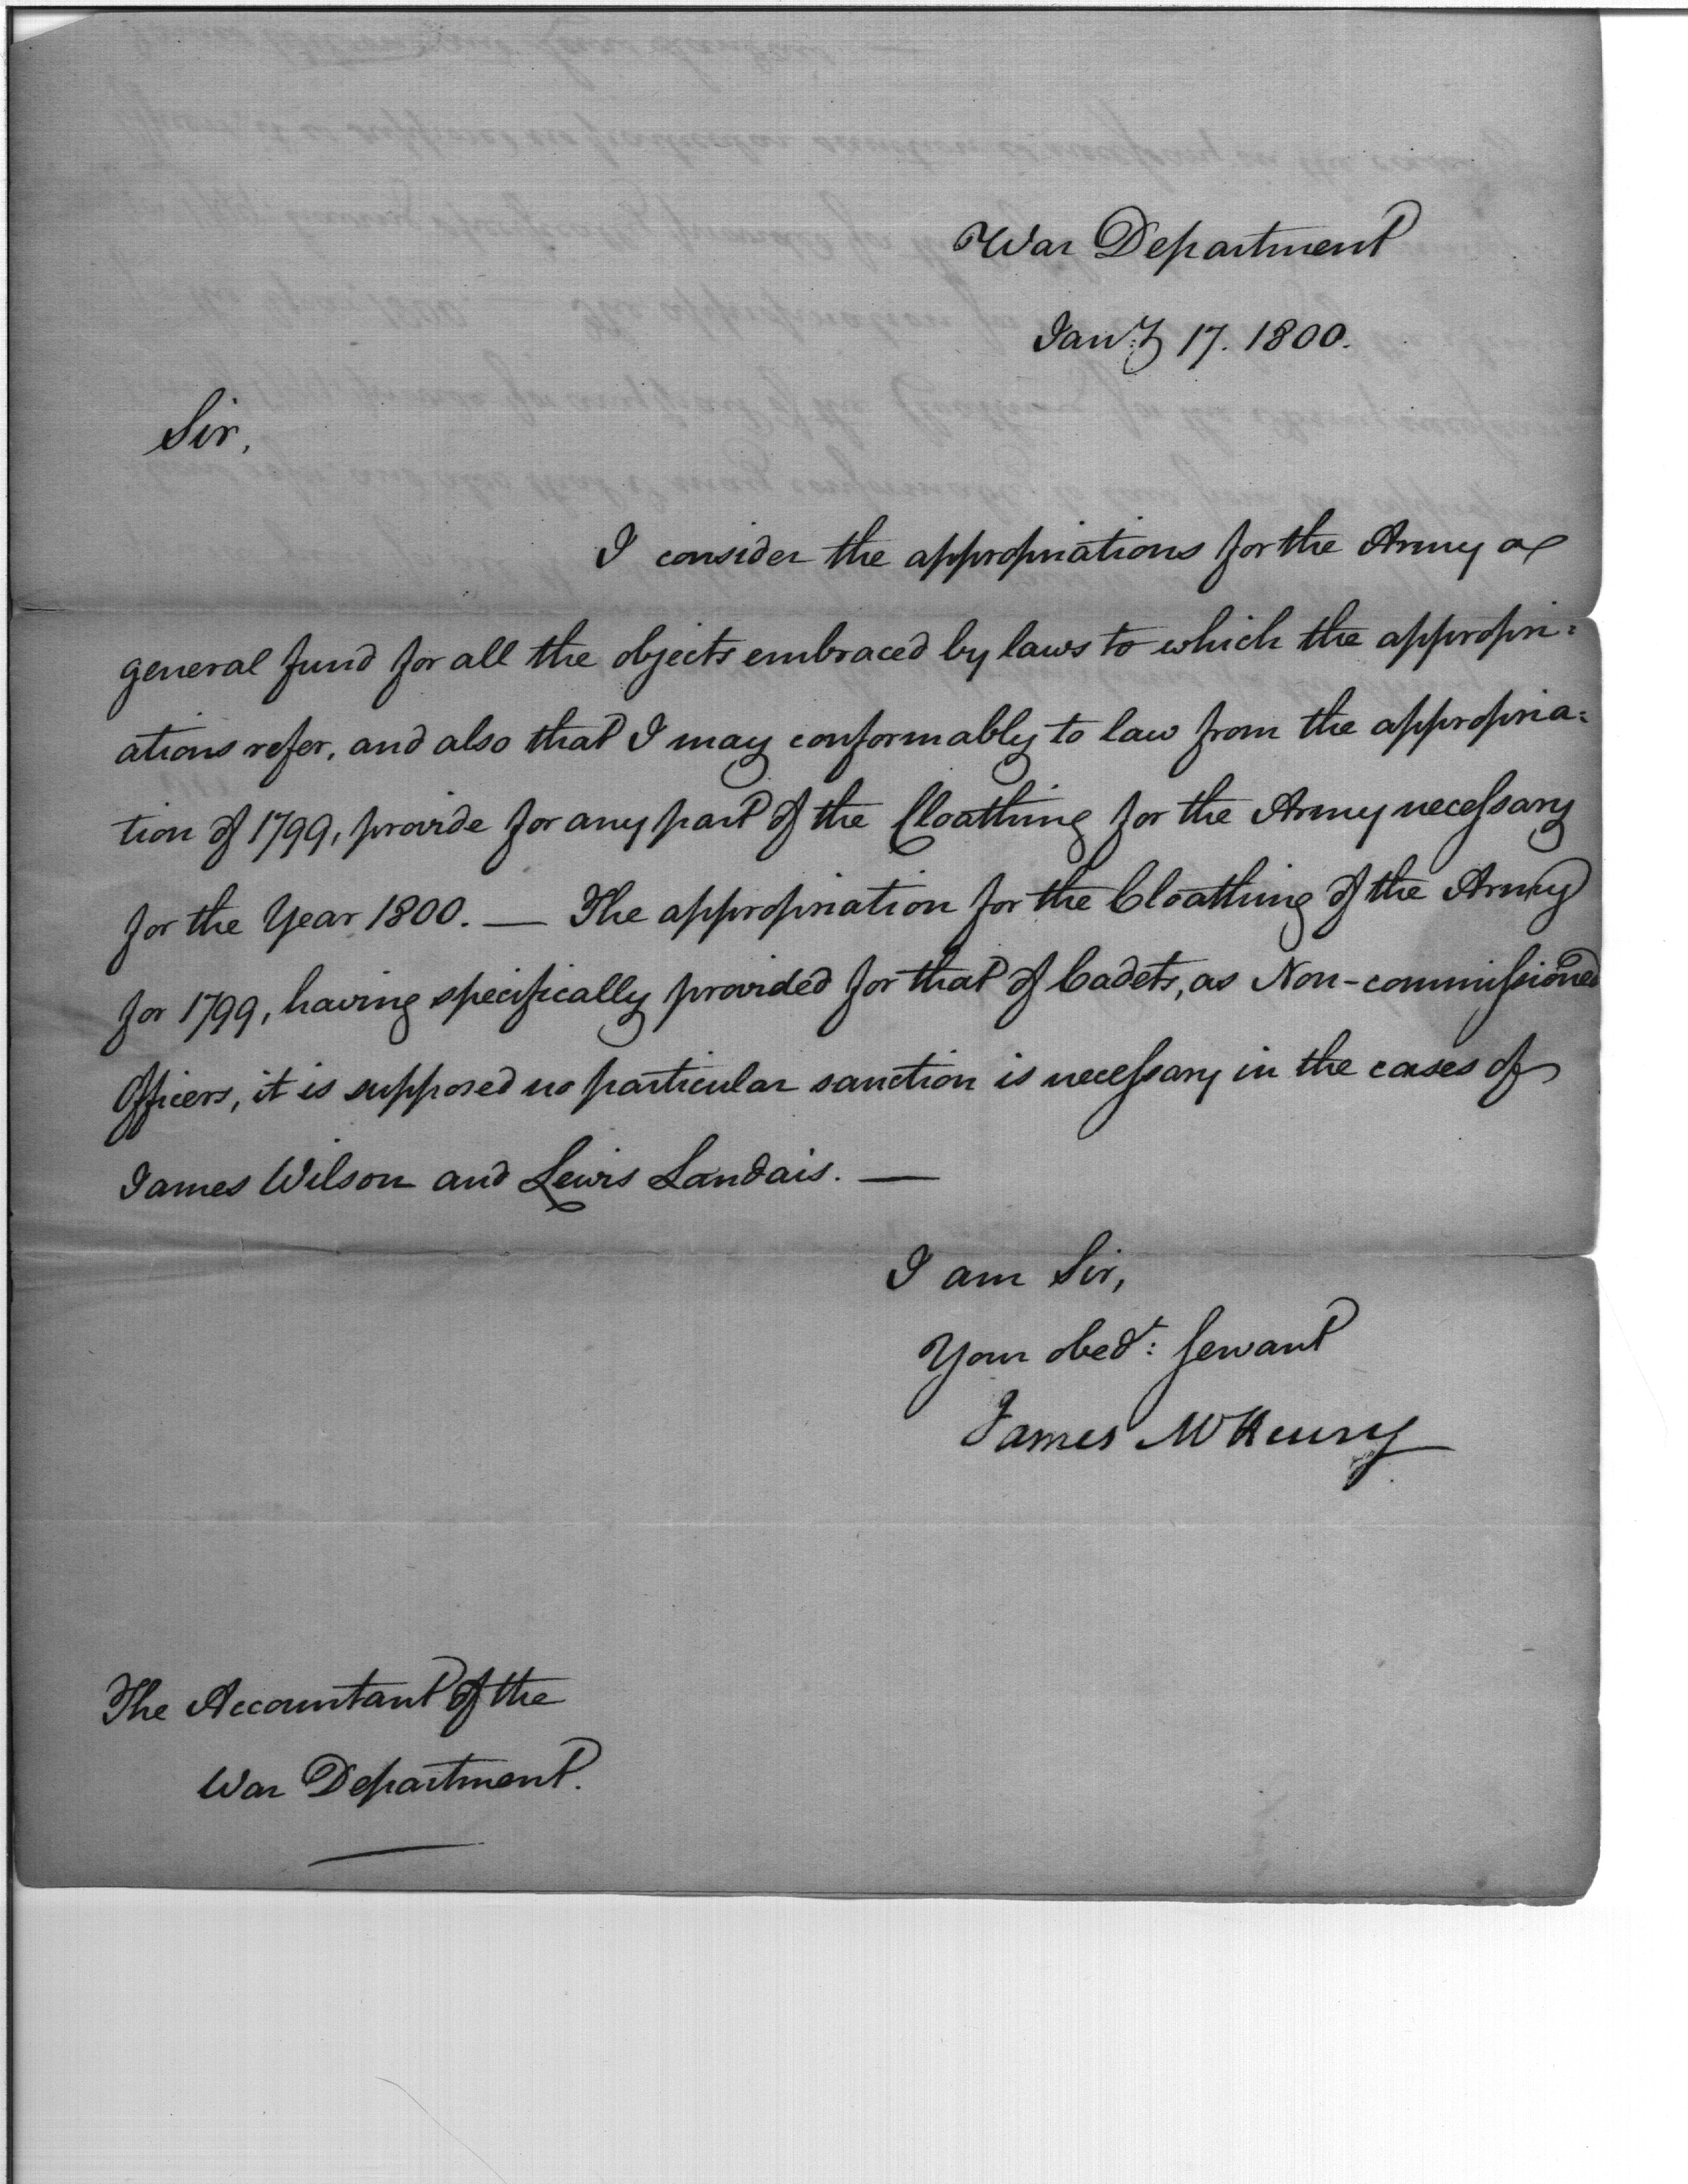 War Department
Jan.y 17. 1800.
Sir,
I consider the appropriations for the Army a
general fund for all the objects embraced by laws to which the appropri=
ations refer, and also that I may conformably to law from the appropria=
tion of 1799, provide for any part of the Cloathing for the Army necessary
for the Year 1800. — The appropriation for the Cloathing of the Army
for 1799, having specifically provided for that of Cadets, as Non-commissioned
Officers, it is supposed no particular sanction is necessary in the cases of
James Wilson and Lewis Landais. —
I am Sir,
Your obed.t: servant
James McHenry
The Accountant of the
War Department.